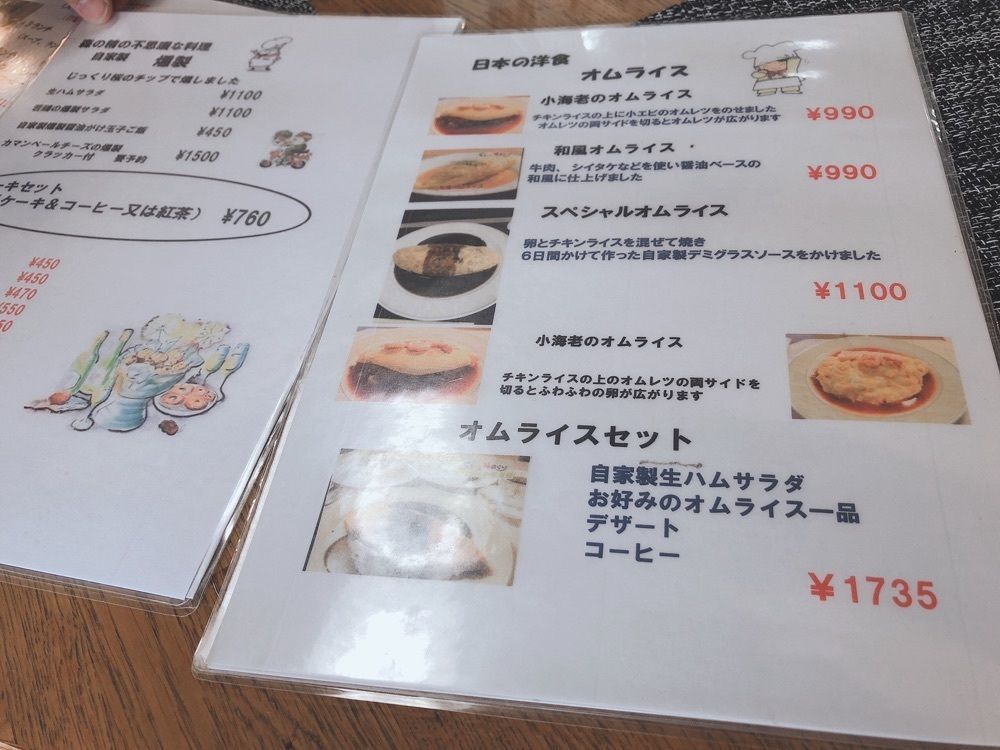 森の精の不思議な料理
自家製 燻製
じっくり桜のチップで燻しました
生ハムサラダ ¥1100
燻製サラダ ¥1100
自家製燻製醤油がけ玉子ご飯 ¥450
カマンベールチーズの燻製
クラッカー付 要予約 ¥1500
ーキセット
ケーキ&コーヒー又は紅茶） ¥760
¥450
¥450
¥470
550
50
日本の洋食
オムライス
小海老のオムライス
チキンライスの上に小エビのオムレツをのせました
オムレツの両サイドを切るとオムレツが広がります
¥990
和風オムライス
牛肉、シイタケなどを使い醤油ベースの
和風に仕上げました
¥990
スペシャルオムライス
卵とチキンライスを混ぜて焼き
6日間かけて作った自家製デミグラスソースをかけました
¥1100
小海老のオムライス
チキンライスの上のオムレツの両サイドを
切るとふわふわの卵が広がります
オムライスセット
自家製生ハムサラダ
お好みのオムライス一品
デザート
コーヒー
¥1735